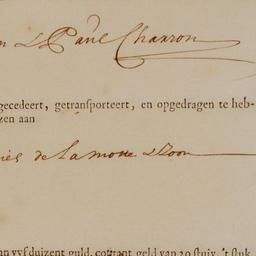 n & Paul Charron
gecedeert, getransporteert, en opgedragen te heb-
zen aan
nies de la motte & Zoon
an vyfduizent guld. courant geld van 20 stuiv. 't stuk